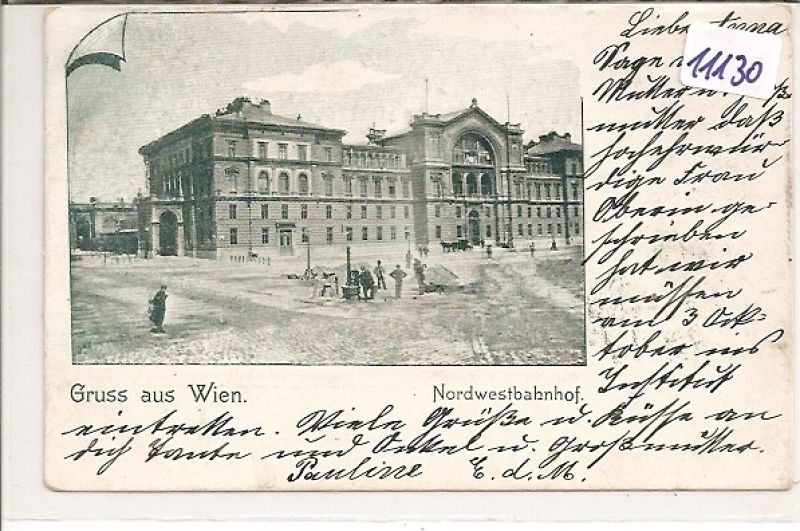 Liebe Anna
Sage
11130
Mutter u.
mutter daß
hochehrwür-
dige Frau
Oberin ge-
schrieben
hat wir
müssen
am 3 Ock-
tober ins
Institut
Gruss aus Wien.
Nordwestbahnhof.
eintretten. Viele Grüße u. Küsse an
dich Tante und Onkel u. Großmutter.
Pauline E. d. M.